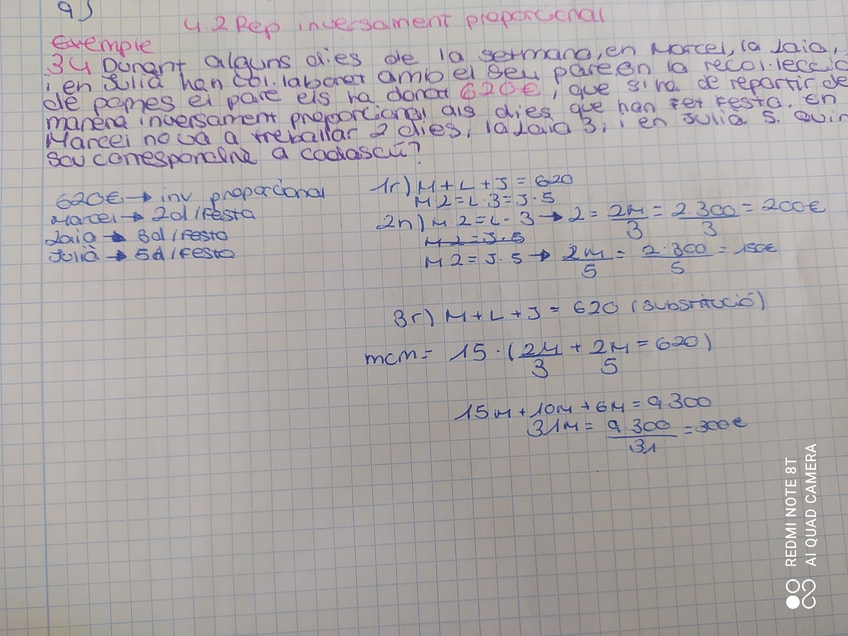 9)
4.2 Rep inversament proporcional
Exemple
34 Durant alguns dies de la setmana, en Marcel, la Laia,
i en Julià han col.laborat amb el seu pare en la recol.lecció
de pomes el pare els ha donat 620€, que s'ha de repartir de
manera inversament proporcional als dies que han fet festa. En
Marcel no va a treballar 2 dies, la Laia 3, i en Julià 5. Quin
sou correspondrà a cadascú?
620€ → inv proporcional
Marcel → 2d/festa
Laia → 3d/festa
Julià → 5d/festa
1r) M + L + J = 620
M 2 = L · 3 = J · 5
2n) M 2 = L · 3 → L = 2M/3 = 2.300/3 = 200€
M 2 = J · 5
M 2 = J · 5 → 2M/5 = 2·300/5 = 150€
3r) M + L + J = 620 (substitució)
mcm = 15 · (2M/3 + 2M/5 = 620)
15M + 10M + 6M = 9.300
31M = 9.300/31 = 300€
REDMI NOTE 8T
AI QUAD CAMERA